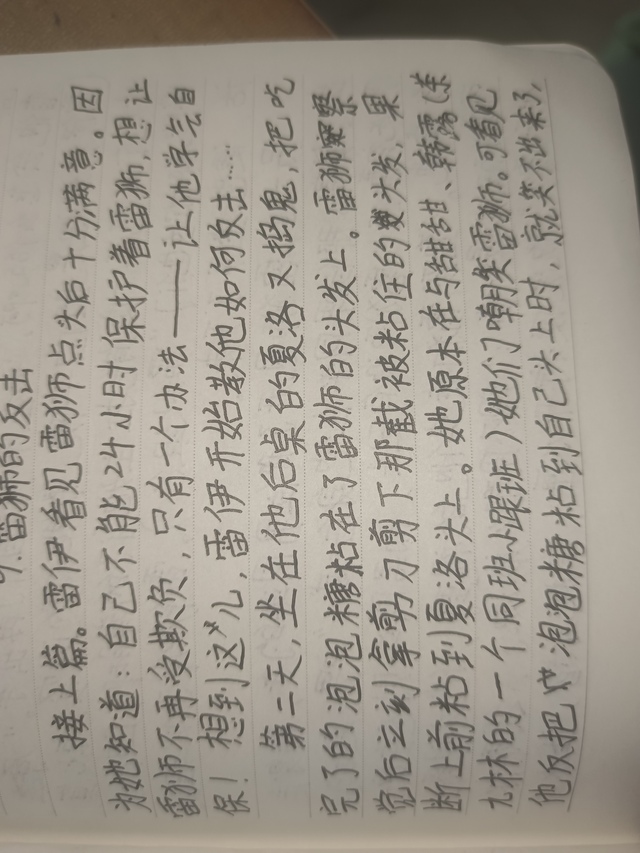 9. 雷狮的反击
接上篇。雷伊看见雷狮点头后十分满意。因
为她知道：自己不能24小时保护着雷狮，想让
雷狮不再受欺负，只有一个办法——让他学会自
保！想到这儿，雷伊开始教他如何反击……
第二天，坐在他后桌的夏洛又捣鬼，把吃
完了的泡泡糖粘在了雷狮的头发上。雷狮察
觉后立刻拿剪刀剪下那截被粘住的头发，果
断上前粘到夏洛头上。她原本在与甜甜、韩露（茶
九林的一个同班小跟班）她们嘲笑雷狮。可看见
他反把泡泡糖粘到自己头上时，就笑不出来了，